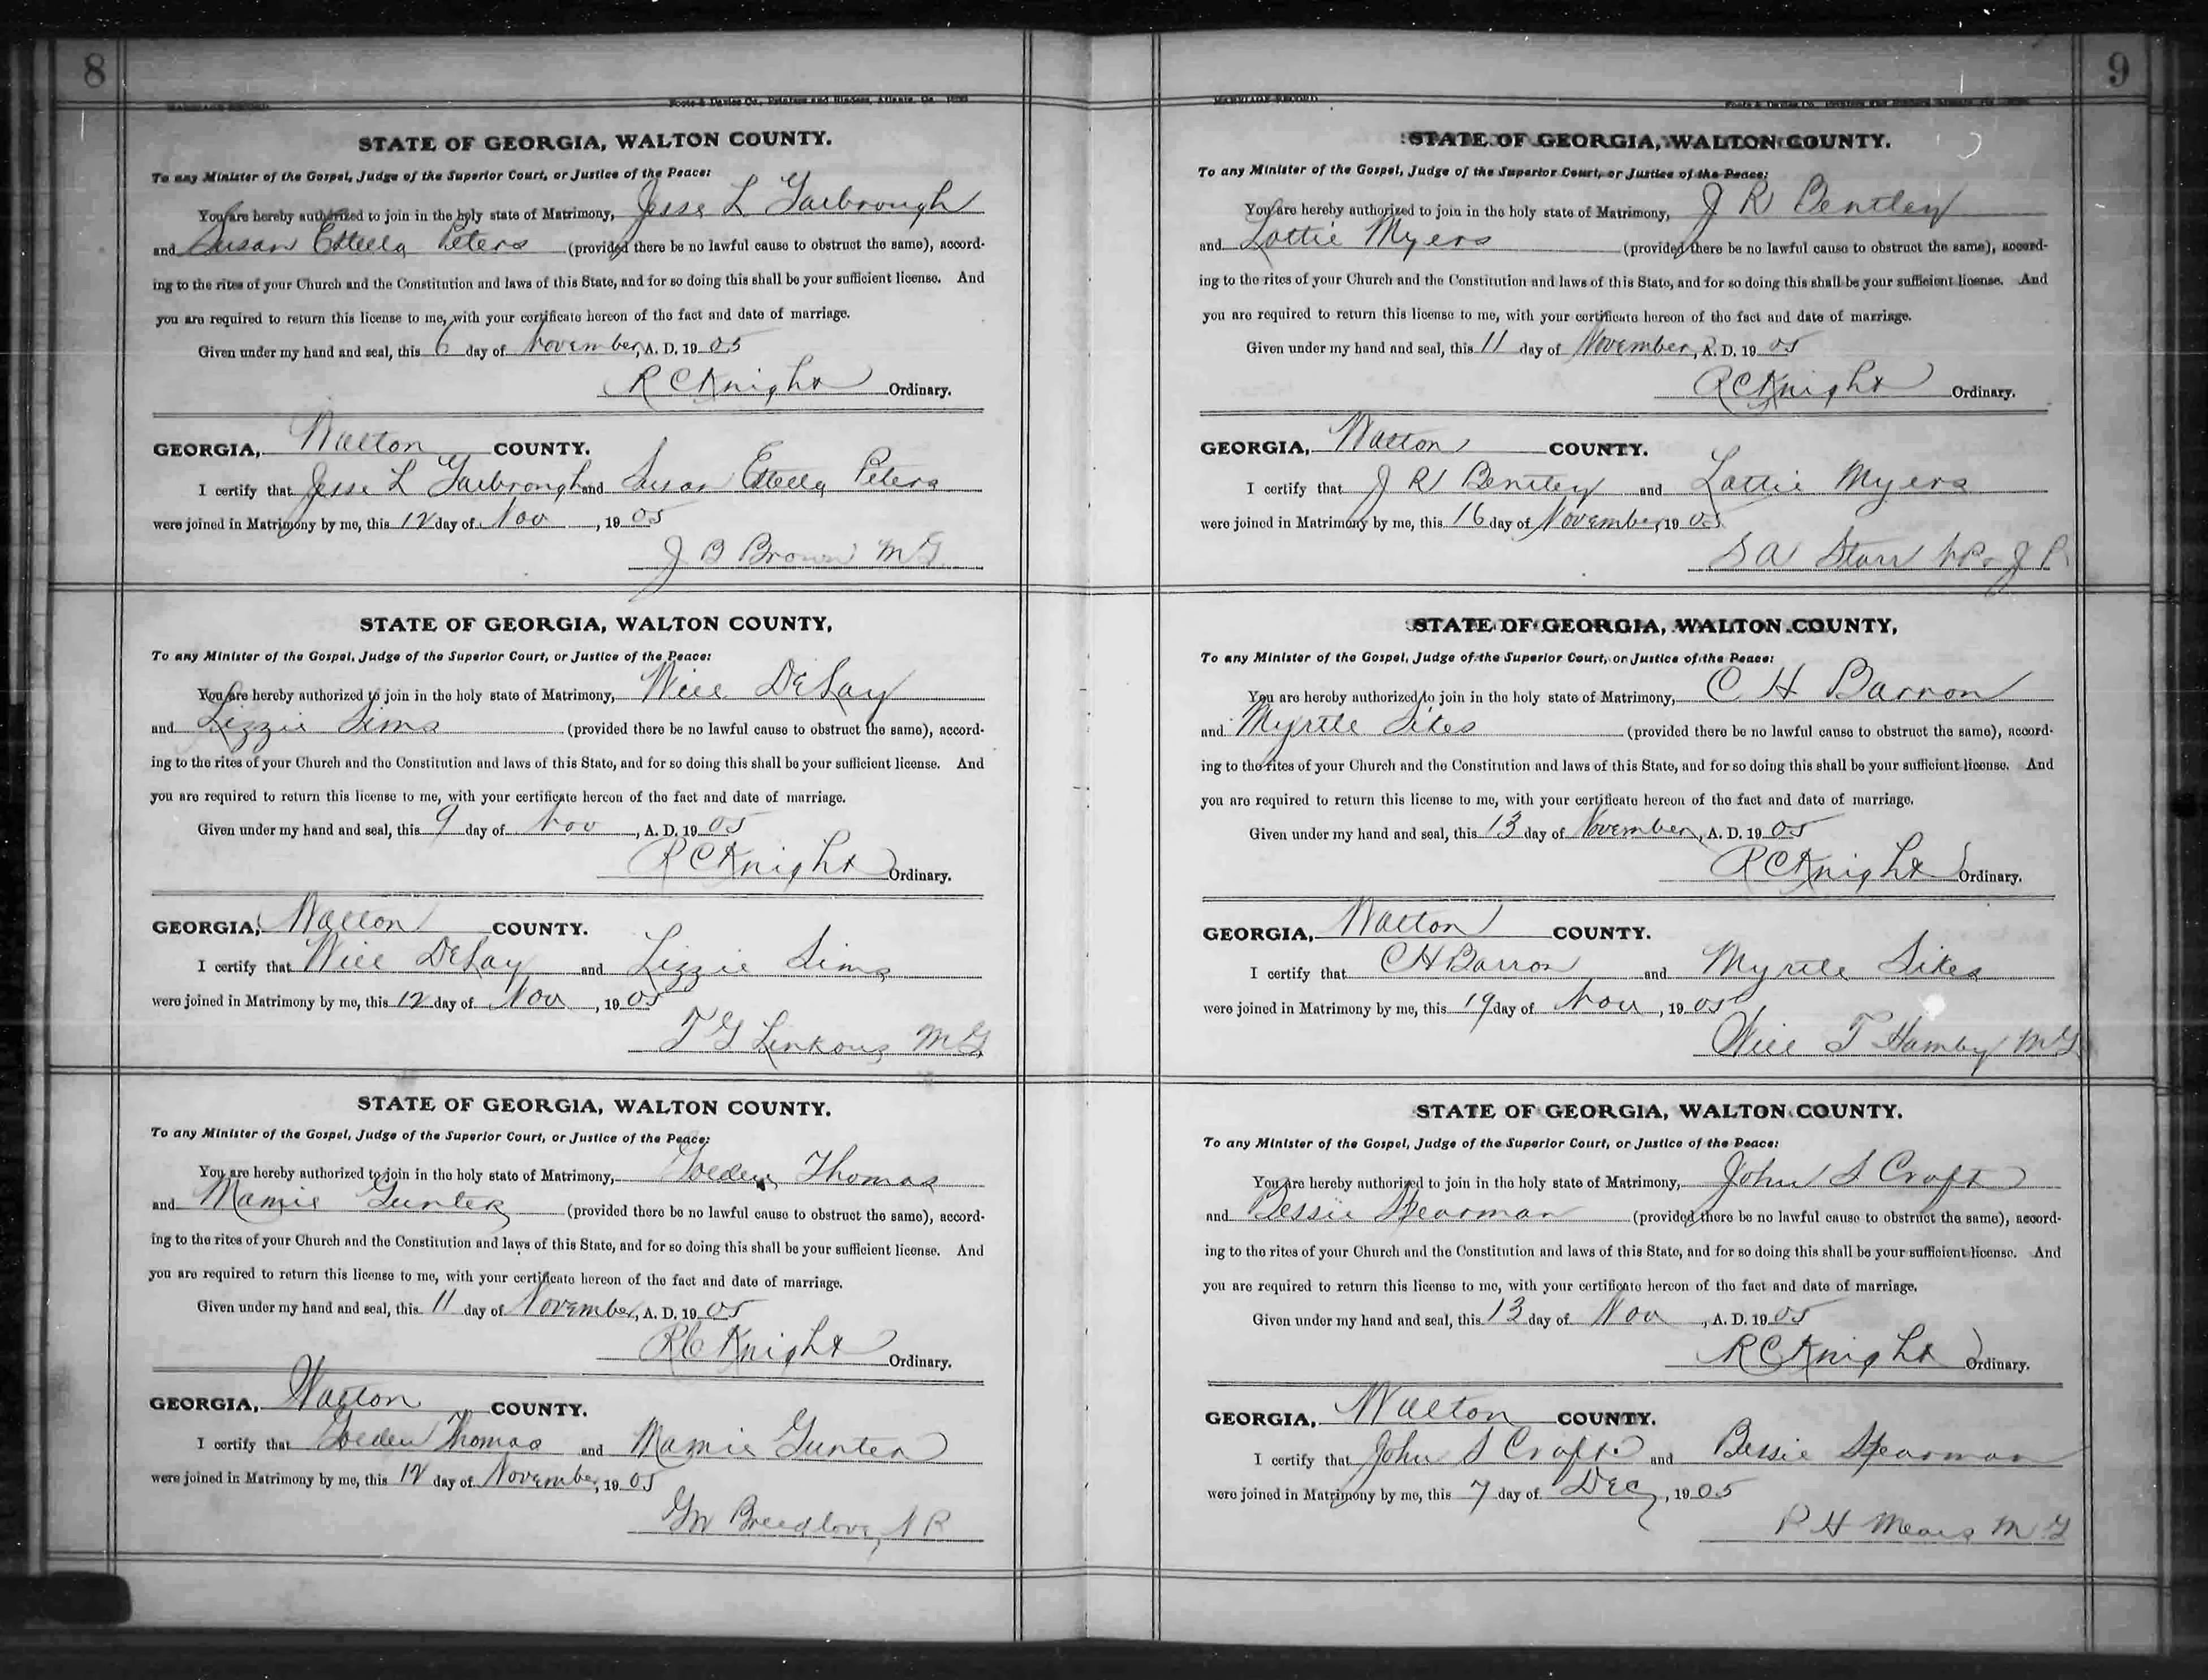 8
MARRIAGE RECORD. Foote & Davies Co., Printers and Binders, Atlanta, Ga.
STATE OF GEORGIA, WALTON COUNTY.
To any Minister of the Gospel, Judge of the Superior Court, or Justice of the Peace:
You are hereby authorized to join in the holy state of Matrimony, Jesse L Yarbrough
and Susan Estella Peters (provided there be no lawful cause to obstruct the same), accord-
ing to the rites of your Church and the Constitution and laws of this State, and for so doing this shall be your sufficient license. And
you are required to return this license to me, with your certificate hereon of the fact and date of marriage.
Given under my hand and seal, this 6 day of November, A. D. 1905
R C Knight Ordinary.
GEORGIA, Walton COUNTY.
I certify that Jesse L Yarbrough and Susan Estella Peters
were joined in Matrimony by me, this 12 day of Nov, 1905
J B Brown M G
STATE OF GEORGIA, WALTON COUNTY,
To any Minister of the Gospel, Judge of the Superior Court, or Justice of the Peace:
You are hereby authorized to join in the holy state of Matrimony, Will DeLay
and Lizzie Sims (provided there be no lawful cause to obstruct the same), accord-
ing to the rites of your Church and the Constitution and laws of this State, and for so doing this shall be your sufficient license. And
you are required to return this license to me, with your certificate hereon of the fact and date of marriage.
Given under my hand and seal, this 9 day of Nov, A. D. 1905
R C Knight Ordinary.
GEORGIA, Walton COUNTY.
I certify that Will DeLay and Lizzie Sims
were joined in Matrimony by me, this 12 day of Nov, 1905
T G Linkous M G
STATE OF GEORGIA, WALTON COUNTY.
To any Minister of the Gospel, Judge of the Superior Court, or Justice of the Peace:
You are hereby authorized to join in the holy state of Matrimony, Golden Thomas
and Mamie Gunter (provided there be no lawful cause to obstruct the same), accord-
ing to the rites of your Church and the Constitution and laws of this State, and for so doing this shall be your sufficient license. And
you are required to return this license to me, with your certificate hereon of the fact and date of marriage.
Given under my hand and seal, this 11 day of November, A. D. 1905
R C Knight Ordinary.
GEORGIA, Walton COUNTY.
I certify that Golden Thomas and Mamie Gunter
were joined in Matrimony by me, this 12 day of November, 1905
G W Breedlove, N P
9
MARRIAGE RECORD.
STATE OF GEORGIA, WALTON COUNTY.
To any Minister of the Gospel, Judge of the Superior Court, or Justice of the Peace:
You are hereby authorized to join in the holy state of Matrimony, J R Bentley
and Lottie Myers (provided there be no lawful cause to obstruct the same), accord-
ing to the rites of your Church and the Constitution and laws of this State, and for so doing this shall be your sufficient license. And
you are required to return this license to me, with your certificate hereon of the fact and date of marriage.
Given under my hand and seal, this 11 day of November, A. D. 1905
R C Knight Ordinary.
GEORGIA, Walton COUNTY.
I certify that J R Bentley and Lottie Myers
were joined in Matrimony by me, this 16 day of November, 1905
S A Starr J P
STATE OF GEORGIA, WALTON COUNTY,
To any Minister of the Gospel, Judge of the Superior Court, or Justice of the Peace:
You are hereby authorized to join in the holy state of Matrimony, C H Barron
and Myrtle Sikes (provided there be no lawful cause to obstruct the same), accord-
ing to the rites of your Church and the Constitution and laws of this State, and for so doing this shall be your sufficient license. And
you are required to return this license to me, with your certificate hereon of the fact and date of marriage.
Given under my hand and seal, this 13 day of November, A. D. 1905
R C Knight Ordinary.
GEORGIA, Walton COUNTY.
I certify that C H Barron and Myrtle Sikes
were joined in Matrimony by me, this 19 day of Nov, 1905
Will T Hamby M G
STATE OF GEORGIA, WALTON COUNTY.
To any Minister of the Gospel, Judge of the Superior Court, or Justice of the Peace:
You are hereby authorized to join in the holy state of Matrimony, John S Croft
and Bessie Spearman (provided there be no lawful cause to obstruct the same), accord-
ing to the rites of your Church and the Constitution and laws of this State, and for so doing this shall be your sufficient license. And
you are required to return this license to me, with your certificate hereon of the fact and date of marriage.
Given under my hand and seal, this 13 day of Nov, A. D. 1905
R C Knight Ordinary.
GEORGIA, Walton COUNTY.
I certify that John S Croft and Bessie Spearman
were joined in Matrimony by me, this 7 day of Dec, 1905
P H Mears M G